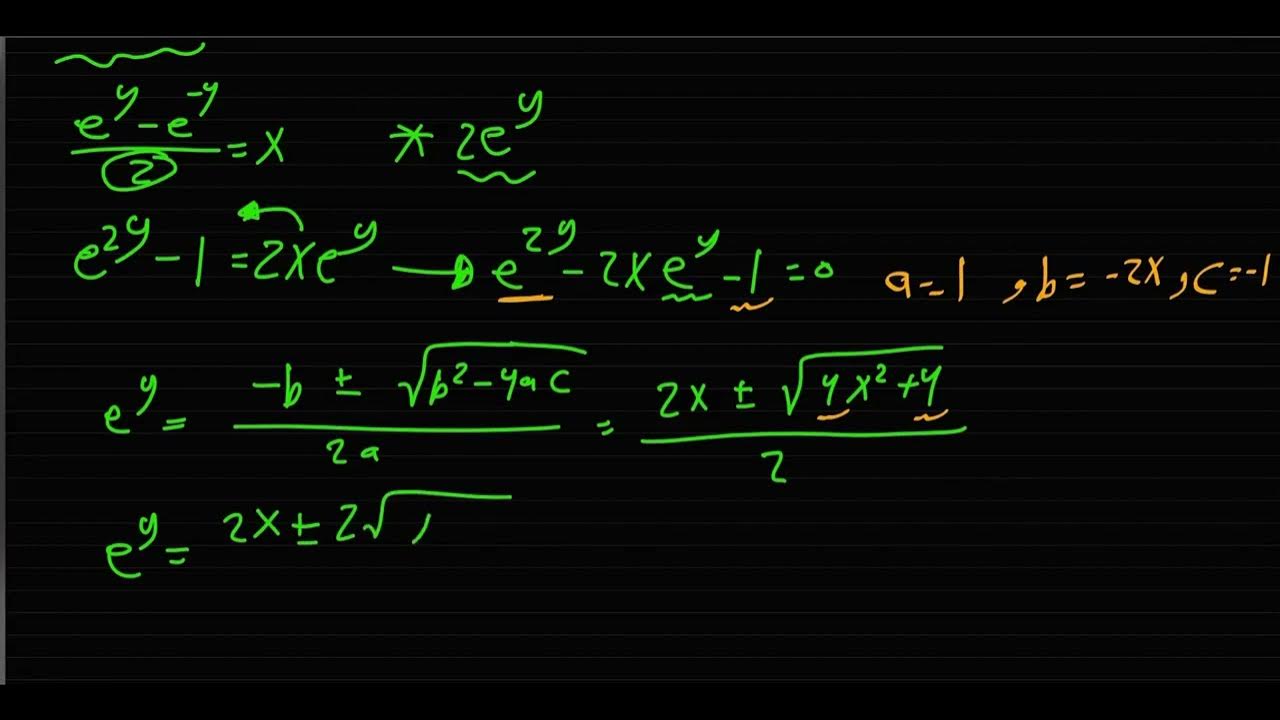 (e^y - e^-y)/2 = x * 2e^y
e^2y - 1 = 2xe^y → e^2y - 2xe^y - 1 = 0 a = 1 , b = -2x , c = -1
e^y = (-b ± √(b² - 4ac))/2a = (2x ± √(4x² + 4))/2
e^y = 2x ± 2√